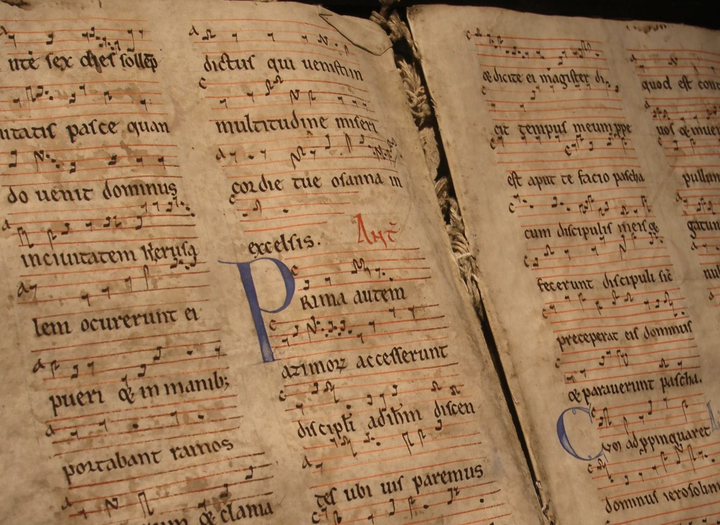 ante sex dies sollēp
nitatis pasce quan
do uenit dominus
inciuitatem iherusa
lem ocurerunt ei
pueri & in manib;
portabant ramos
& clama
dictus qui uenistiin
multitudine miseri
cordie tue osanna in
excelsis. Ant
Prima autem
azimoꝝ accesserunt
discipli adihm dicen
tes ubi uis paremus
& dicite ei magister di
cit tempus meum ꝓpe
est aput te facio pascha
cum discipulis meis
fecerunt discipuli sic
preceperat eis dominus
& parauerunt pascha.
Cum adppinquaret
dominus ierosolim
quod est cont
uos & inue
pullum